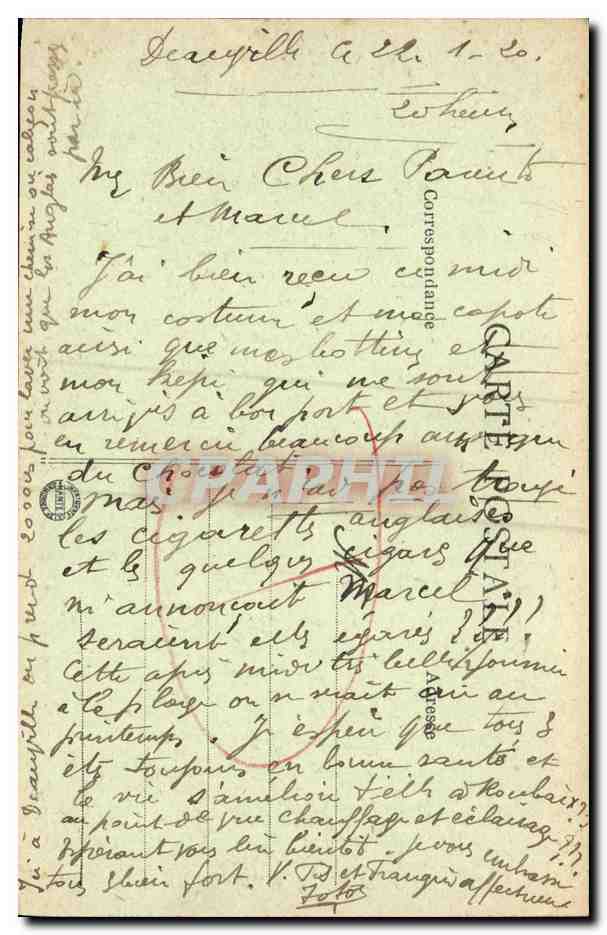 Deauville le 22. 1-20.
20 heures
Mes Bien Chers Parents
et Marcel.
J'ai bien reçu ce midi
mon costume et ma capote
ainsi que mes bottines et
mon képi qui me sont
arrivés à bon port et vous
en remercie beaucoup ainsi que
du chocolat,
mais je n'ai pas trouvé
les cigarettes anglaises
et les quelques cigares que
m'annonçait Marcel
seraient elles égarés ???
Cette après midi très belle journée
à la plage on se serait cru au
printemps. J'espère que tous 3
êtes toujours en bonne santé et
la vie s'améliore t'elle à Roubaix ??
au point de vue chauffage et éclairage ???
Espérant vous lire bientôt. je vous embrasse
tous 3 bien fort. V. fils et frangin affectueux
Totor
Ici à Deauville on prend 20 sous pour laver une chemise ou caleçon
on voit que les Anglais sont passés
par là.
Correspondance
CARTE POSTALE
Adresse
CPAPHIL